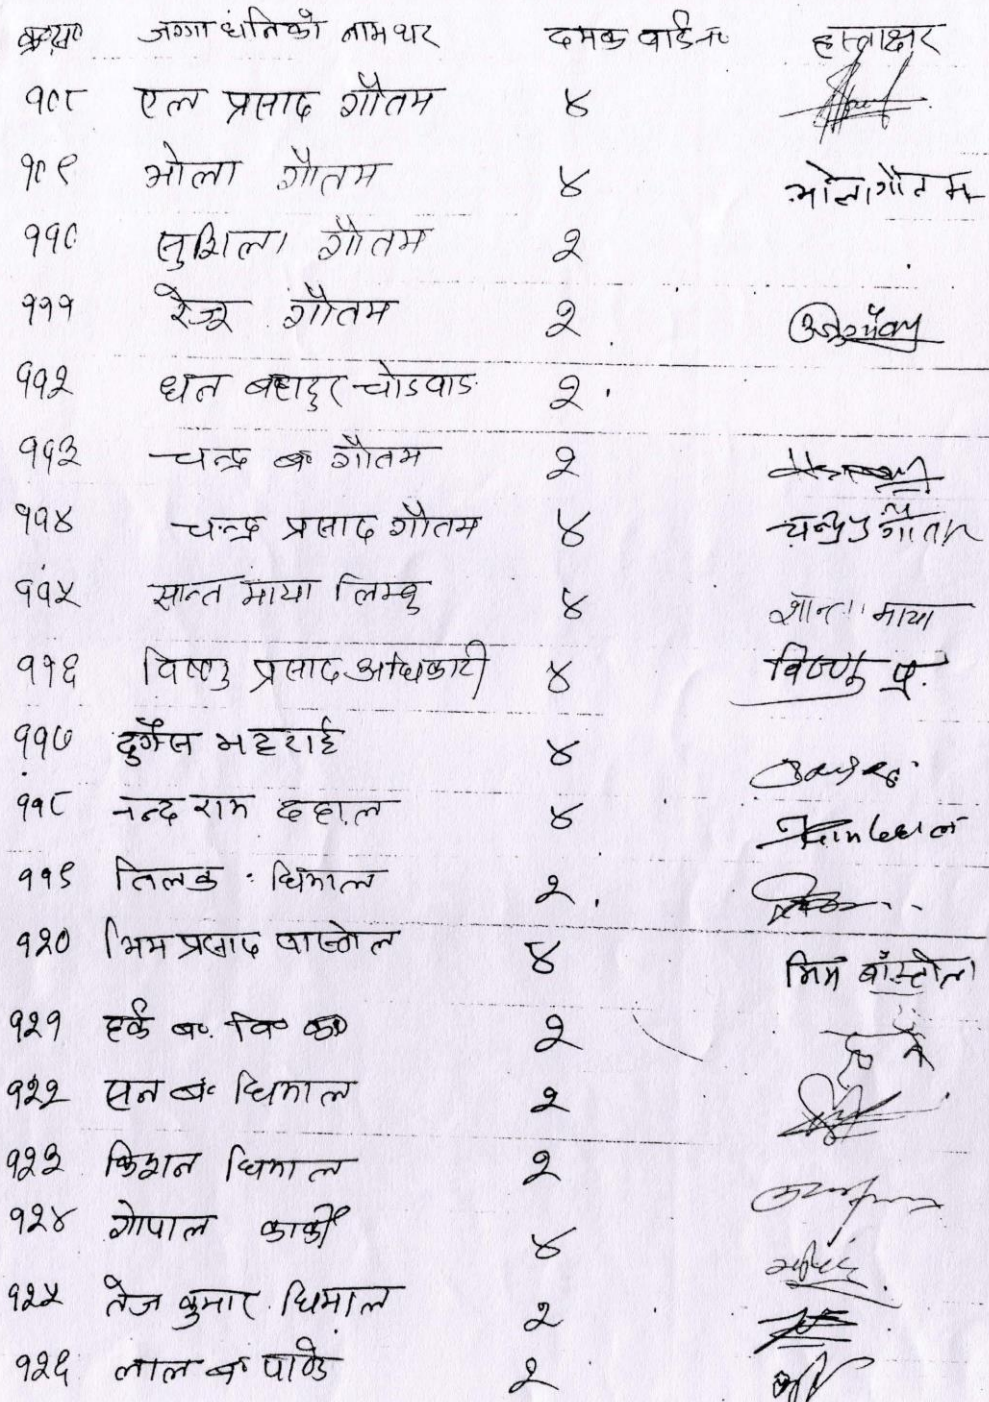 क्र.सं. जग्गा धनिको नाम थर दमक वार्ड नं हस्ताक्षर
१०८ एल प्रसाद गौतम ४
१०९ भोला गौतम ४ भोला गौतम
११० सुशिला गौतम २
१११ रेजू गौतम २
११२ धन बहादुर चोङवाङ २
११३ चन्द्र ब॰ गौतम २
११४ चन्द्र प्रसाद गौतम ४ चन्द्र प्र गौतम
११५ सान्त माया लिम्बु ४ शान्ता माया
११६ विष्णु प्रसाद अधिकारी ४ विष्णु प्र.
११७ दुर्गेस भट्टराई ४
११८ नन्द राम दहाल ४
११९ तिलक धिमाल २
१२० भिम प्रसाद वास्तोल ४ भिम बाँस्तोला
१२१ हर्क ब. वि॰ क॰ २
१२२ सन ब॰ धिमाल २
१२३ किशन धिमाल २
१२४ गोपाल कार्की ४
१२५ तेज कुमार धिमाल २
१२६ लाल ब॰ पाण्डे २